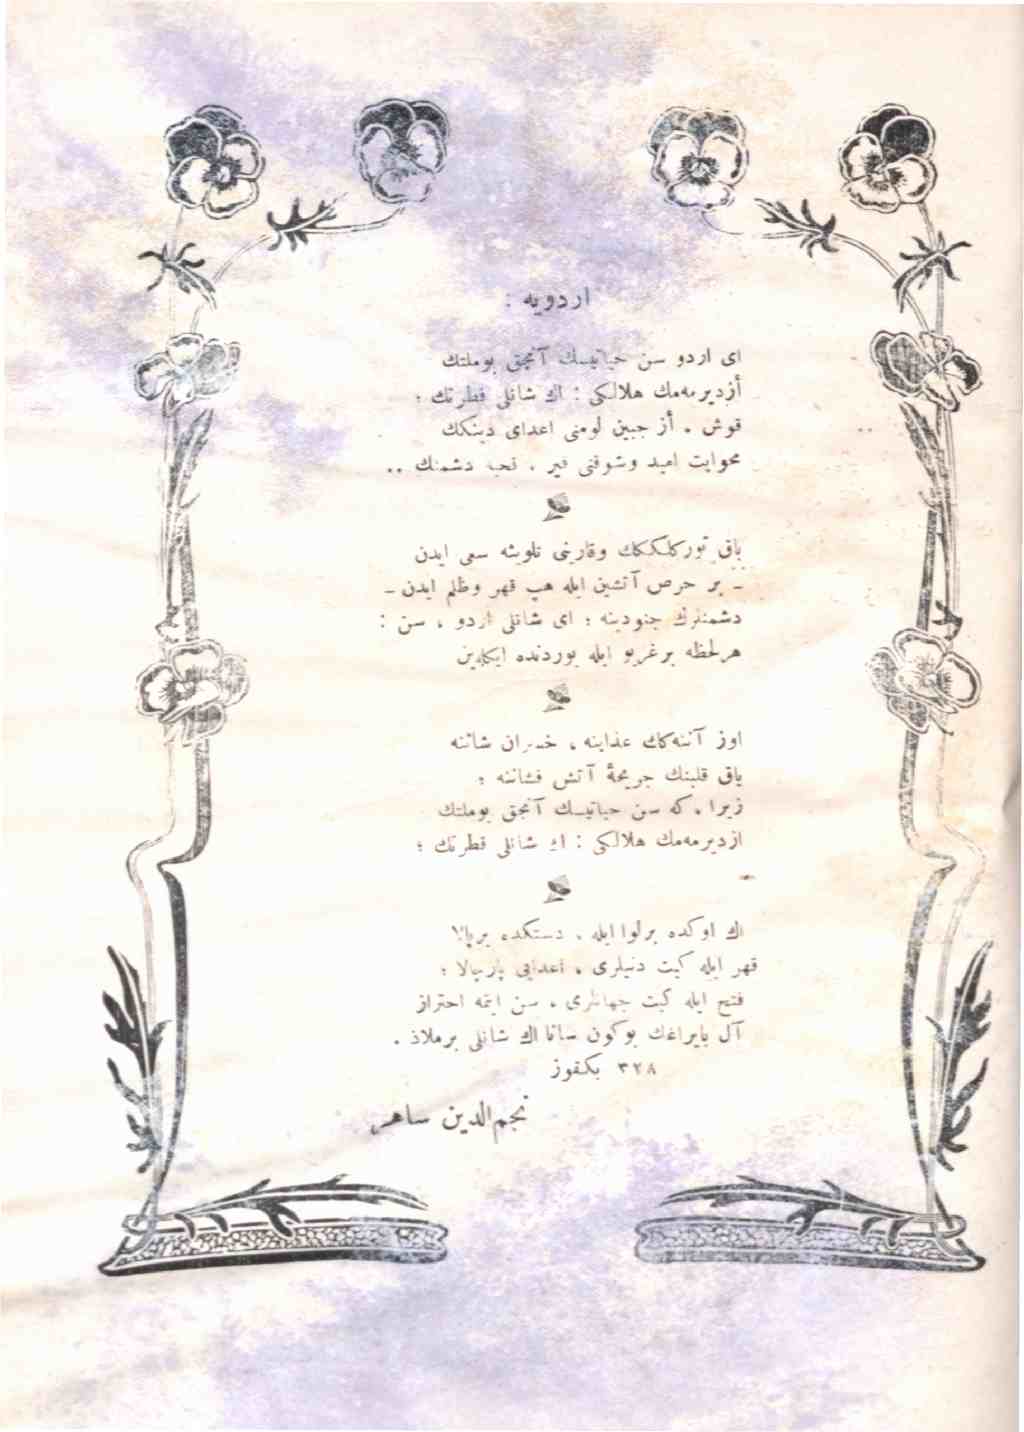 اردویه :
ای اردو سن حیاتیسك آنجق بوملتك
أزدیرمه‌مك هلالکی : اك شانلی فطرتك ؛
قوش ، أز جبین لومنی اعدای دینکك
محوایت امید وشوقنی قیر ، دشمنك ..
باق تورکلککك وقارینی تلویثه سعی ایدن
ـ بر حرص آتشین ایله هپ قهر وظلم ایدن ـ
دشمنلرك جنودینه ؛ ای شانلی اردو ، سن :
هرلحظه برغریو ایله یوردنده ایکله‌ین
اوز آننه‌كك عذابنه ، خسران شاننه
باق قلبنك جریحهٔ آتش فشاننه ؛
زیرا ، که سن حیاتیسك آنجق بوملتك
ازدیرمه‌مك هلالکی : اك شانلی فطرتك ؛
اك اوکده برلوا ایله ، دستکده برپالا
قهر ایله کیت دنیلری ، اعدایی پارپالا ؛
فتح ایله کیت جهانلری ، سن ایتمه احتراز
آل بایراغك بوکون سانا اك شانلی برملاذ .
٣٢٨ بکقوز
نجم‌الدین ساهر